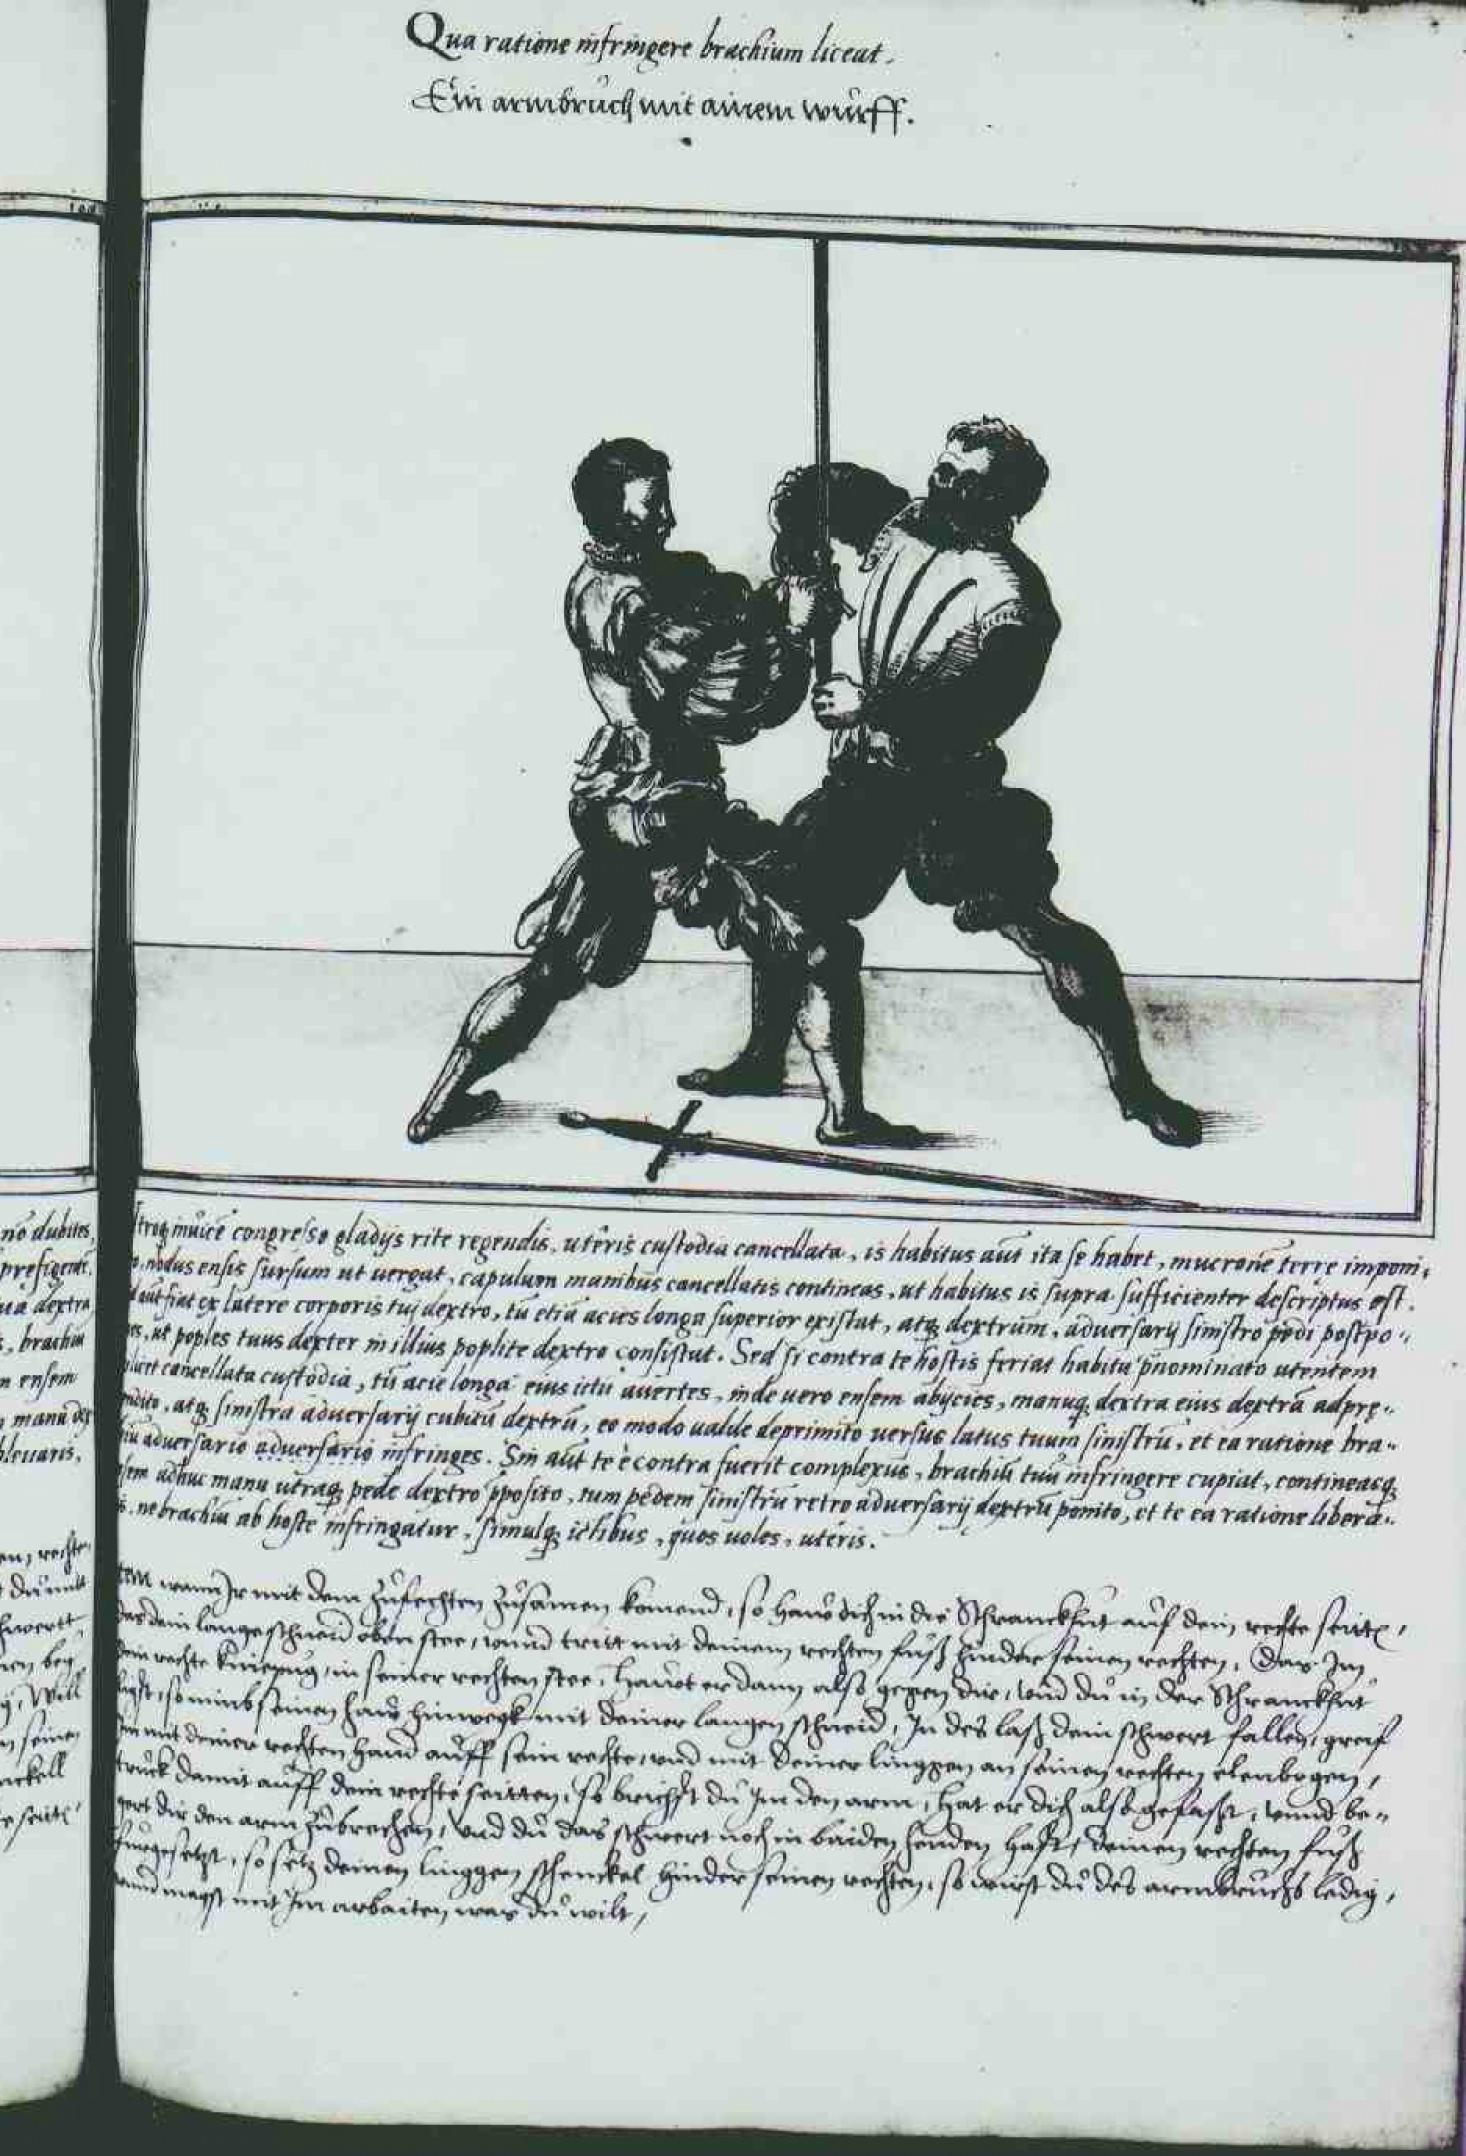 Qua ratione infringere brachium liceat.
Ein armbruch mit ainem wurff.
nō dubites
prefigent
dextra
brachiū
ensem
manu
bleuaris.
inuicē congresso gladijs rite regendis, uteris custodia cancellata, is habitus aūt ita se habet, mucronē terre imponi,
nodus ensis sursum ut uergat, capulum manibus cancellatis contineas, ut habitus is supra sufficienter descriptus est.
aūt fiat ex latere corporis tuj dextro, tū etiā acies longa superior existat, atq dextrum, aduersarij sinistro pedi postpo-
ut poples tuus dexter in illius poplite dextro consistat. Sed si contra te hostis feriat habitu p̄nominato utentem
cancellata custodia, tū acie longa eius ictū auertes, inde uero ensem abycies, manuq dextra eius dextrā adpre-
atq sinistra aduersarij cubitū dextrū, eo modo ualde deprimito uersus latus tuum sinistrū, et ea ratione bra-
aduersario aduersario infringes. Sin aūt te è contra fuerit complexus, brachiū tuū infringere cupiat, contineasq
adhuc manu utraq pede dextro p̄posito, tum pedem sinistrū retro aduersarij dextrū ponito, et te ea ratione libera-
ne brachiū ab hoste infringatur, simulq ictibus, quos uoles, uteris.
wann Jr mit dem zufechten zusamen komend, so haw dich in die Schranckhut auf dein rechte seitten,
das dein lange schneid oben stee, vnnd tritt mit deinem rechten fuß hinder seinen rechten, das Im
dein rechte kniepug in seiner rechten stee, Hawet er dann also gegen dir, vnd du in der Schranckhut
ligst, so nimb seinen haw hinwegk mit deiner langen schneid, In des laß dein schwert fallen, greif
Im mit deiner rechten hand auff sein rechte, vnd mit deiner linggen an seinen rechten elenbogen,
truck damit auff dein rechte seitten, so brichst du Im den arm, Hat er dich also gefasst, vnnd be-
gert dir den arm zubrechen, vnd du das schwert noch in baiden henden hast, deinen rechten fuß
fürgesetzt, so setz deinen linggen schenckel hinder seinen rechten, so wirst du des armbruchs ledig,
vnnd magst mit Im arbaiten was du wilt,